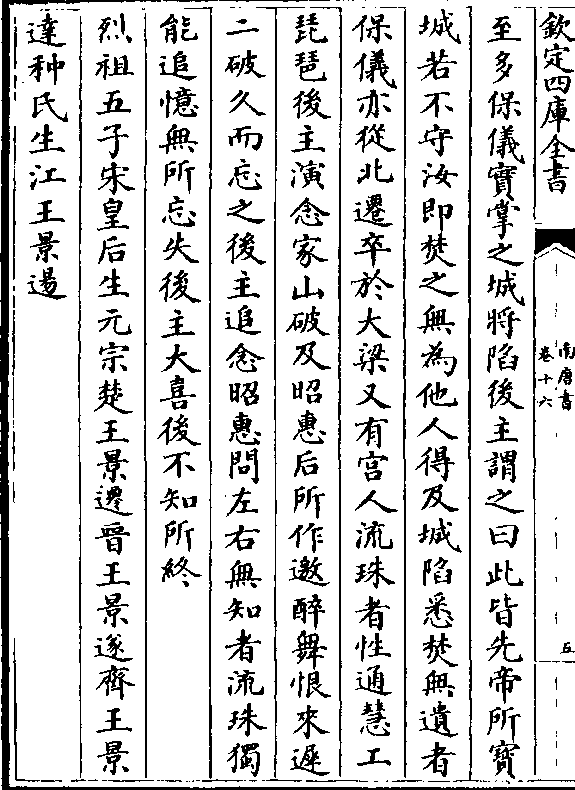 欽定四庫全書
南唐書
卷十六
五
至多保儀實掌之城將陷後主謂之曰此皆先帝所寳
城若不守汝即焚之無為他人得及城陷悉焚無遺者
保儀亦從北遷卒於大梁又有宫人流珠者性通慧工
琵琶後主演念家山破及昭惠后所作邀醉舞恨來遲
二破久而忘之後主追念昭惠問左右無知者流珠獨
能追憶無所忘失後主大喜後不知所終
烈祖五子宋皇后生元宗楚王景遷晉王景遂齊王景
達种氏生江王景逷